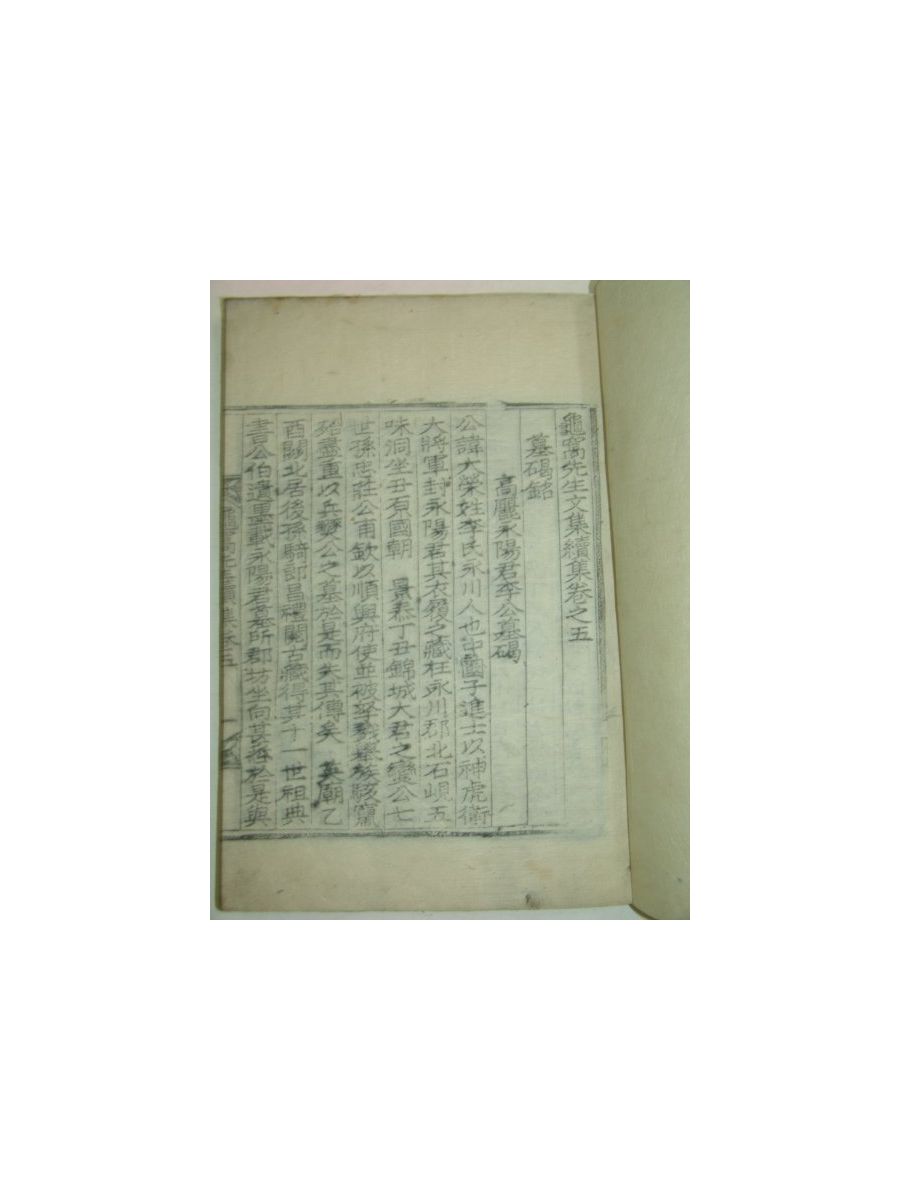 龜窩先生文集續集卷之五
墓碣銘
高麗永陽君李公墓碣
公諱大榮姓李氏永川人也中國子進士以神虎衛
大將軍封永陽君其衣履之藏在永川郡北石峴五
味洞坐丑原國朝 景泰丁丑錦城大君之變公七
世孫忠莊公甫欽以順興府使並被孥戮擧族駭竄
殆盡重以兵燹公之墓於是而失其傳矣 英廟乙
酉關北居後孫騎郎昌禮閱古藏得其十一世祖典
書公伯遺墨載永陽君墓所郡坊坐向甚 於是與